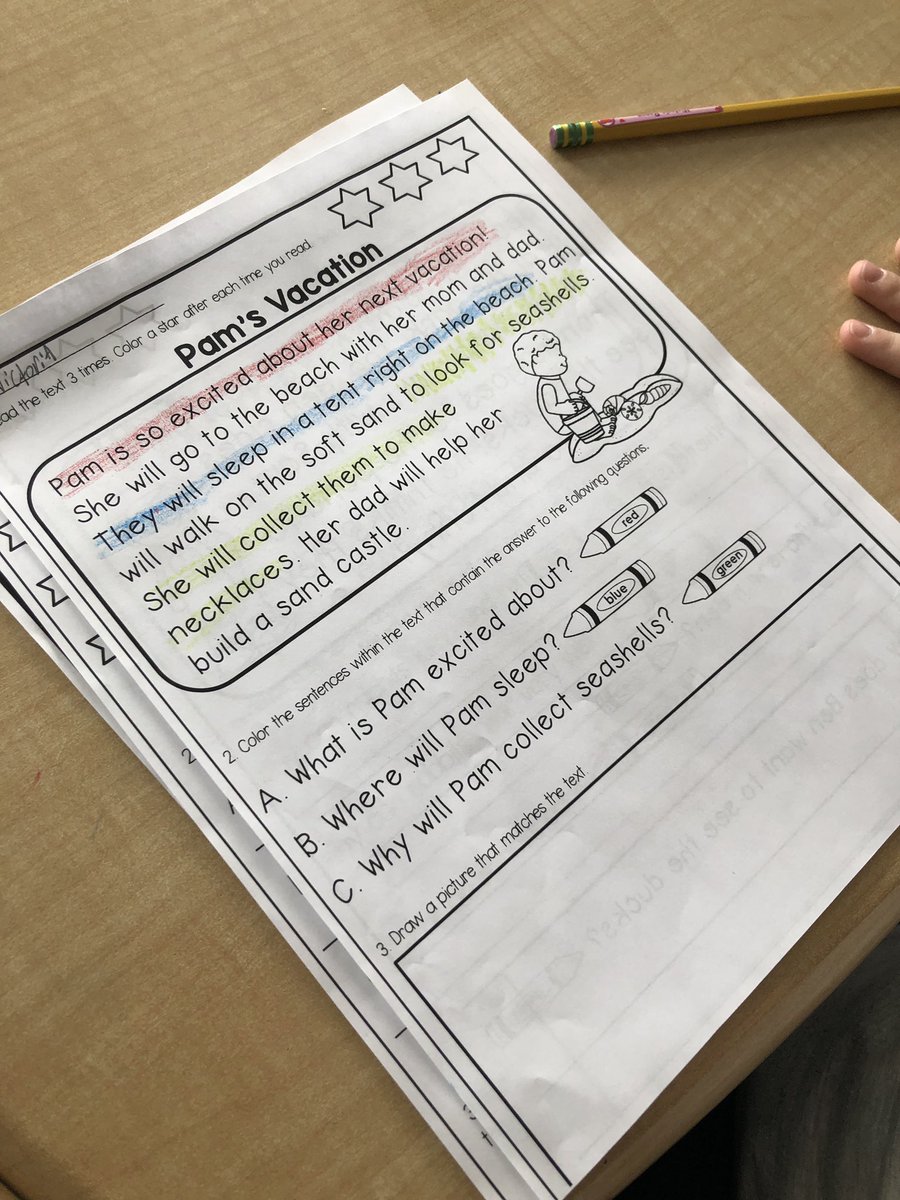 the text 3 times. Color a star after each time you read.
Pam's Vacation
Pam is so excited about her next vacation!
She will go to the beach with her mom and dad.
They will sleep in a tent right on the beach. Pam
will walk on the soft sand to look for seashells.
She will collect them to make
necklaces. Her dad will help her
build a sand castle.
2. Color the sentences within the text that contain the answer to the following questions.
A. What is Pam excited about? red
B. Where will Pam sleep? blue
C. Why will Pam collect seashells? green
3. Draw a picture that matches the text.